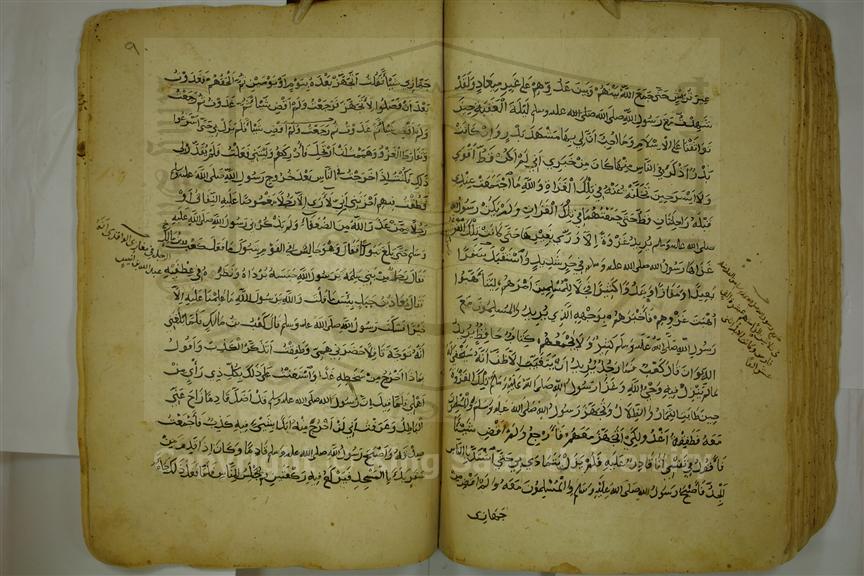 عير قريش حتى جمع الله بينهم وبين عدوهم على غير ميعاد ولقد
شهدت مع رسول الله صلى الله عليه وسلم ليلة العقبة حين
تواثقنا على الاسلام وما احب ان لي بها مشهد بدر وان كانت
بدر اذكر في الناس منها كان من خبري اني لم اكن قط اقوى
ولا ايسر حين تخلفت عنه في تلك الغزاة والله ما اجتمعت عندي
قبله راحلتان قط حتى جمعتهما في تلك الغزاة ولم يكن رسول الله
صلى الله عليه وسلم يريد غزوة الا ورى بغيرها حتى كانت تلك الغزوة
غزاها رسول الله صلى الله عليه وسلم في حر شديد واستقبل سفرا
بعيدا ومفازا وعدوا كثيرا فجلا للمسلمين امرهم ليتاهبوا
اهبة غزوهم فاخبرهم بوجهه الذي يريد والمسلمون مع
رسول الله صلى الله عليه وسلم كثير ولا يجمعهم كتاب حافظ يريد
الديوان قال كعب فما رجل يريد ان يتغيب الا ظن انه سيخفى له
ما لم ينزل فيه وحي الله وغزا رسول الله صلى الله عليه وسلم تلك الغزوة
حين طابت الثمار والظلال وتجهز رسول الله صلى الله عليه وسلم والمسلمون
معه فطفقت اغدو لكي اتجهز معهم فارجع ولم اقض شيئا
فاقول في نفسي انا قادر عليه فلم يزل يتمادى بي حتى اشتد بالناس
الجد فاصبح رسول الله صلى الله عليه وسلم والمسلمون معه ولم اقض من
جهازي
٩
جهازي شيئا فقلت اتجهز بعده بيوم او يومين ثم الحقهم فغدوت
بعد ان فصلوا لاتجهز فرجعت ولم اقض شيئا ثم غدوت ثم رجعت
ولم اقض شيئا ثم غدوت ثم رجعت ولم اقض شيئا فلم يزل بي حتى اسرعوا
وتفارط الغزو وهممت ان ارتحل فادركهم وليتني فعلت فلم يقدر لي
ذلك فكنت اذا خرجت في الناس بعد خروج رسول الله صلى الله عليه وسلم
فطفت فيهم احزنني اني لا ارى الا رجلا مغموصا عليه النفاق او
رجلا ممن عذر الله من الضعفاء ولم يذكرني رسول الله صلى الله عليه
وسلم حتى بلغ تبوك فقال وهو جالس في القوم بتبوك ما فعل كعب
فقال رجل من بني سلمة يا رسول الله حبسه برداه ونظره في عطفيه
فقال معاذ بن جبل بئس ما قلت والله يا رسول الله ما علمنا عليه الا
خيرا فسكت رسول الله صلى الله عليه وسلم قال كعب بن مالك فلما بلغني
انه توجه قافلا حضرني همي وطفقت اتذكر الكذب واقول
بماذا اخرج من سخطه غدا واستعنت على ذلك بكل ذي راي من
اهلي فلما قيل ان رسول الله صلى الله عليه وسلم قد اظل قادما زاح عني
الباطل وعرفت اني لن اخرج منه ابدا بشيء فيه كذب فاجمعت
صدقه واصبح رسول الله صلى الله عليه وسلم قادما وكان اذا قدم من
سفر بدا بالمسجد فيركع فيه ركعتين ثم جلس للناس فلما فعل ذلك